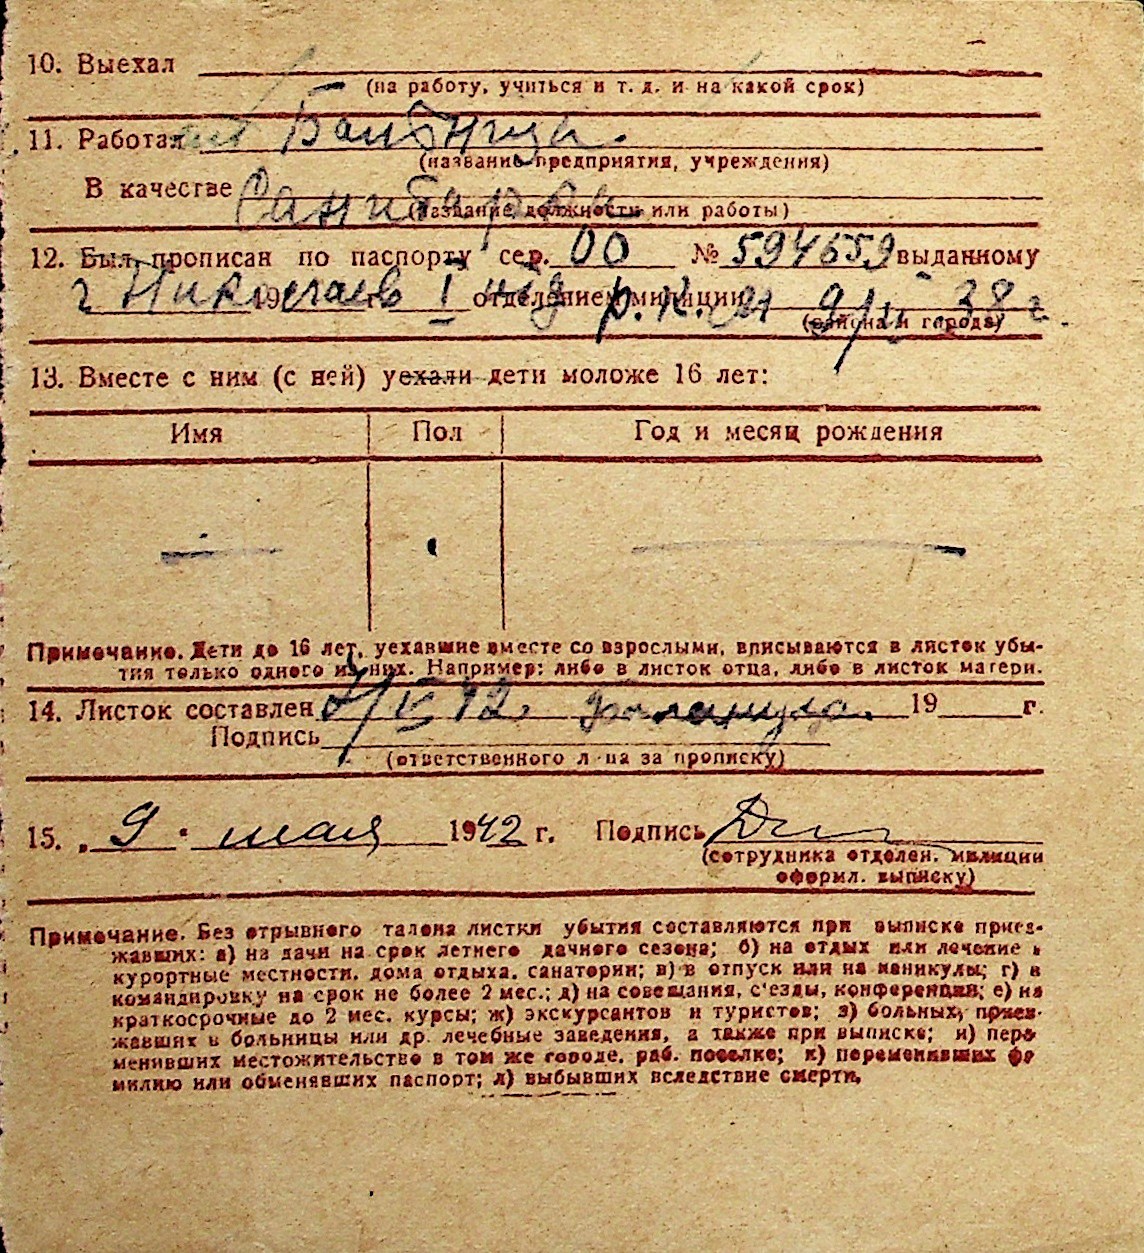 10. Выехал
(на работу, учиться и т. д. и на какой срок)
11. Работал
(название предприятия, учреждения)
В качестве Санитарка
(название должности или работы)
12. Был прописан по паспорту сер. 00 № 594659 выданному
г Николаев 19 г. I отделением милиции р.к.м 9/II 38 г.
(района и города)
13. Вместе с ним (с ней) уехали дети моложе 16 лет:
Имя Пол Год и месяц рождения
— —
Примечание. Дети до 16 лет, уехавшие вместе со взрослыми, вписываются в листок убы-
тия только одного из них. Например: либо в листок отца, либо в листок матери.
14. Листок составлен 42. 19 г.
Подпись
(ответственного л-ца за прописку)
15. „ 9 " мая 1942 г. Подпись
(сотрудника отделен. милиции
оформл. выписку)
Примечание. Без отрывного талона листки убытия составляются при выписке приез-
жавших: а) на дачи на срок летнего дачного сезона; б) на отдых или лечение в
курортные местности, дома отдыха, санатории; в) в отпуск или на каникулы; г) в
командировку на срок не более 2 мес.; д) на совещания, с'езды, конференции; е) на
краткосрочные до 2 мес. курсы; ж) экскурсантов и туристов; з) больных, приез-
жавших в больницы или др. лечебные заведения, а также при выписке; и) пере
менивших местожительство в том же городе, раб. поселке; к) переменивших фа
милию или обменявших паспорт; л) выбывших вследствие смерти.